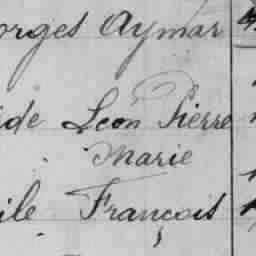 orges Aymar
ide Léon Pierre
Marie
ile François